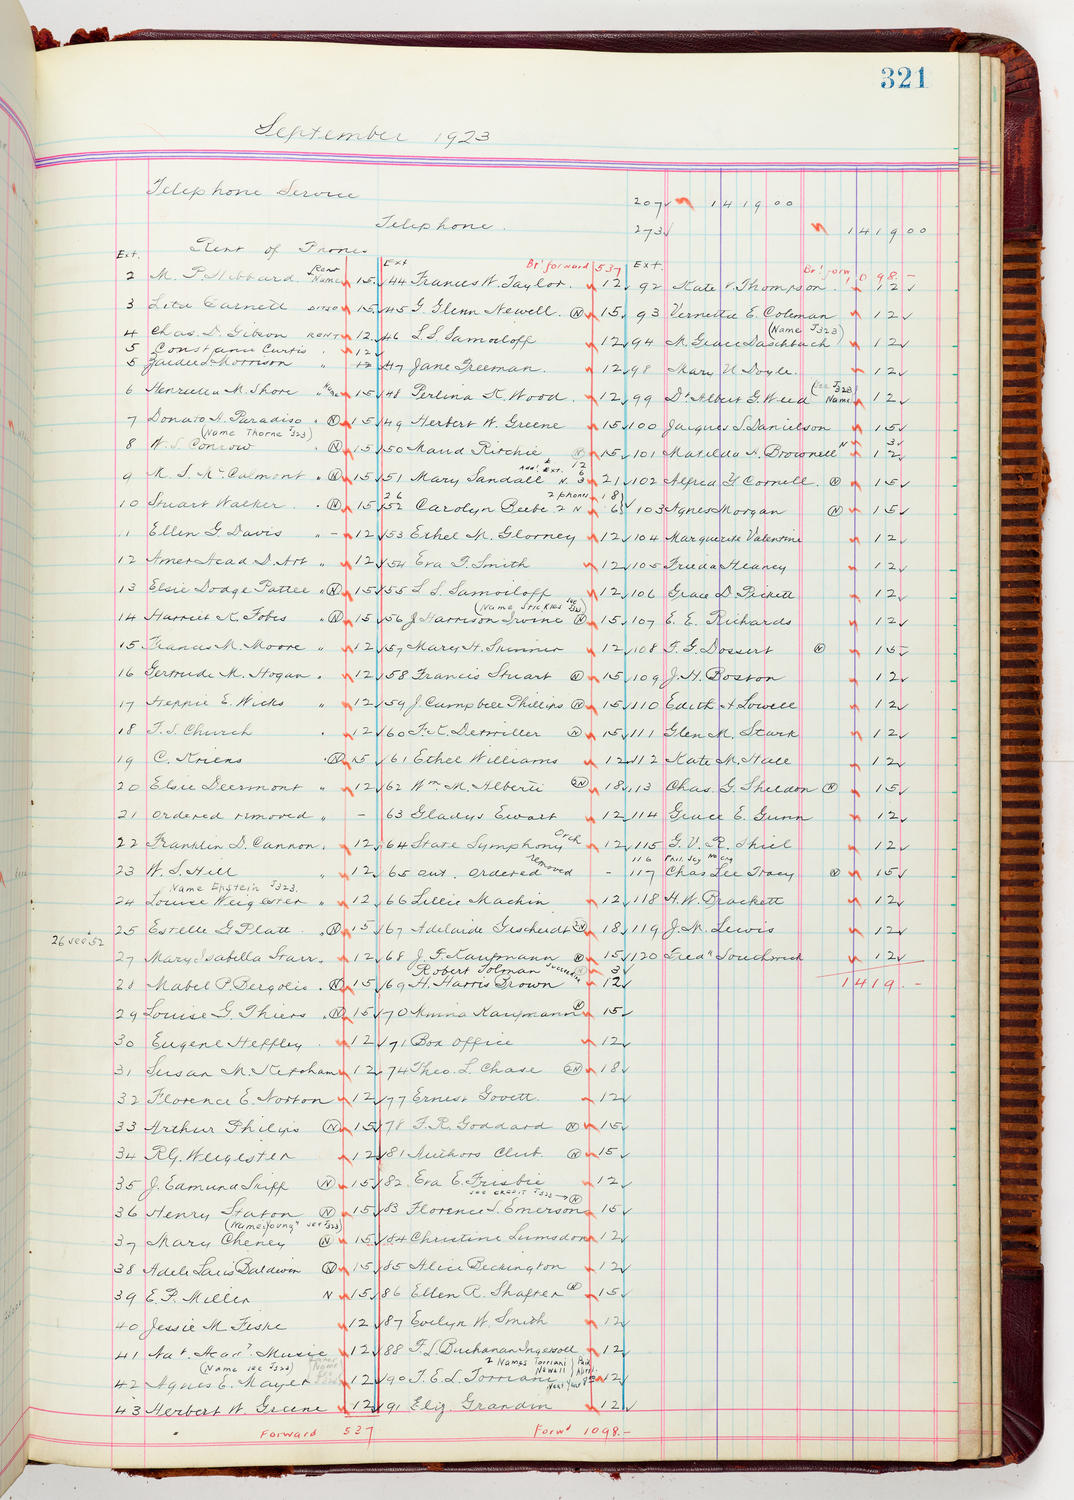 321
September 1923
Telephone Service 207 1419 00
Telephone. 273 1419 00
Rent of Phones
Ext.
2 M. P. Hibbard Rent + Name 15
3 Leta Carnett Ditto 15
4 Chas. D. Gibson Rent 12
5 Constance Curtis " 12
5 Morrison " 12
6 Henrietta M. Shore " 15
7 Donato A. Paradiso . N 15
(Name Thorne J323)
8 W. S. Conrow N 15
9 K. S. McCalmont " N 15
10 Stuart Walker . N 15
11 Ellen G. Davis " - 12
12 Amer Acad D. Art " 12
13 Elsie Dodge Pattee " N 15
14 Harriet K. Fobes " N 15
15 Frances M. Moore " 12
16 Gertrude M. Hogan . 12
17 Heppie E. Wicks " 12
18 F. S. Church . 12
19 C. Kriens . N 15
20 Elsie Deermont " 12
21 ordered removed " -
22 Franklin D. Cannon . 12
23 W. S. Hill " 12
Name Epstein J323.
24 Louise Weigester " 12
25 Estelle G Platt . N 15
26 see 52
27 Mary Isabella Starr . 12
28 Mabel P. Bergolie . N 15
29 Louise G. Thiers . N 15
30 Eugene Heffley . 12
31 Susan M. Ketcham 12
32 Florence E. Norton 12
33 Arthur Philips N 15
34 R. G. Weigester 12
35 J. Edmund Skiff N 15
36 Henry Gaton N 15
(Name "Young" see J323)
37 Mary Cheney N 15
38 Adele Laeis Baldwin N 15
39 E. P. Miller N 15
40 Jessie M Fiske 12
41 Nat. Acad. Music 12
(Name see J323)
42 Agnes E. Mayer 12
43 Herbert W. Greene 12
Forward 537
Ext Br't forward 537
44 Frances W. Taylor. 12
45 G. Glenn Newell. N 15
46 L. S. Samoiloff 12
47 Jane Freeman. 12
48 Perlina K. Wood. 12
49 Herbert W. Greene 15
50 Maud Ritchie N 15
Add'l Ext. 12 6
51 Mary Sandall N. 3 21
26 2 phones 18
52 Carolyn Beebe 2 N 6
53 Ethel M. Glorney 12
54 Eva F. Smith 12
55 L. S. Samoiloff 12
(Name Strickles see J323)
56 J. Harrison Irvine N 15
57 Mary H. Skinner 12
58 Francis Stuart N 15
59 J. Campbell Phillips N 15
60 F. K. Detwiller N 15
61 Ethel Williams 12
62 Wm. M. Alberti 2N 18
63 Gladys Ewart 12
64 State Symphony Orch 12
65 out. ordered removed -
66 Lillie Machin 12
67 Adelaide Gescheidt 2N 18
68 J. F. Kaufmann N 15
Robert Tolman N 3
69 H. Harris Brown 12
70 Minna Kaufmann N 15
71 Box Office 12
74 Theo. L. Chase 2N 18
77 Ernest Govett. 12
78 F. R. Goddard N 15
81 Authors Club N 15
82. Eva E. Frisbie 12
see credit J323 → N
83 Florence S. Emerson 15
84 Christine Lumsdon 12
85 Alice Beckington 12
86 Ellen R. Shafter N 15
87 Evelyn W. Smith 12
88 F. L. Buchanan Ingersoll 12
2 Names Torriani Newell
90 F. E. L. Torriani 12
91 Eliz. Grandin 12
Forw'd 1098.-
Ext. Br't forw 1098.-
92 Kate V. Thompson. 12
93 Vernetta E. Coleman 12
(Name J323)
94 M. Grace Daschbach 12
98 Mary U Doyle. 12
99 Dr Albert G. Weed (see J323 Name) 12
100 Jacques S. Danielson 15
N 3
101 Matilda A. Brownell 12
102 Alfred Y Cornell. N 15
103 Agnes Morgan N 15
104 Marguerite Valentine 12
105 Frieda Heaney 12
106 Grace D. Pickett 12
107 E. E. Richards 12
108 F. G. Dossert N 15
109 J. H. Boston 12
110 Edith A Lowell 12
111 Glen M. Stark 12
112 Kate M. Hall 12
113 Chas. G. Sheldon N 15
114 Grace E. Gunn 12
115 G. V. R. Shiel 12
116
117 Chas Lee Tracy N 15
118 H. W. Brackett 12
119 J. M. Lewis 12
120 Fred'k Southwick 12
1419.-